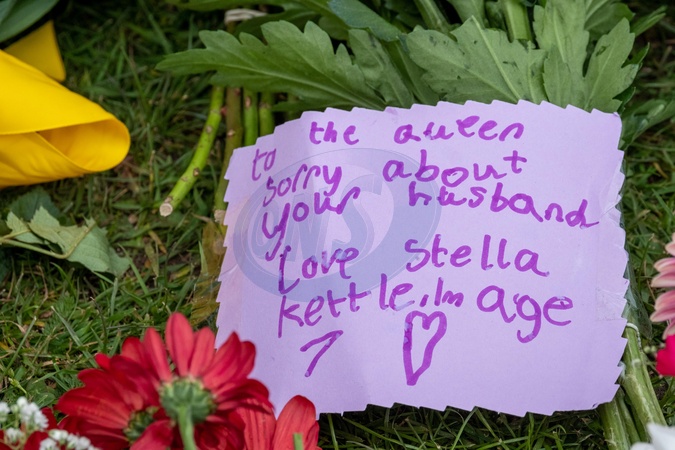 to the queen
sorry about
your husband
Love stella
kettle, Im age
7